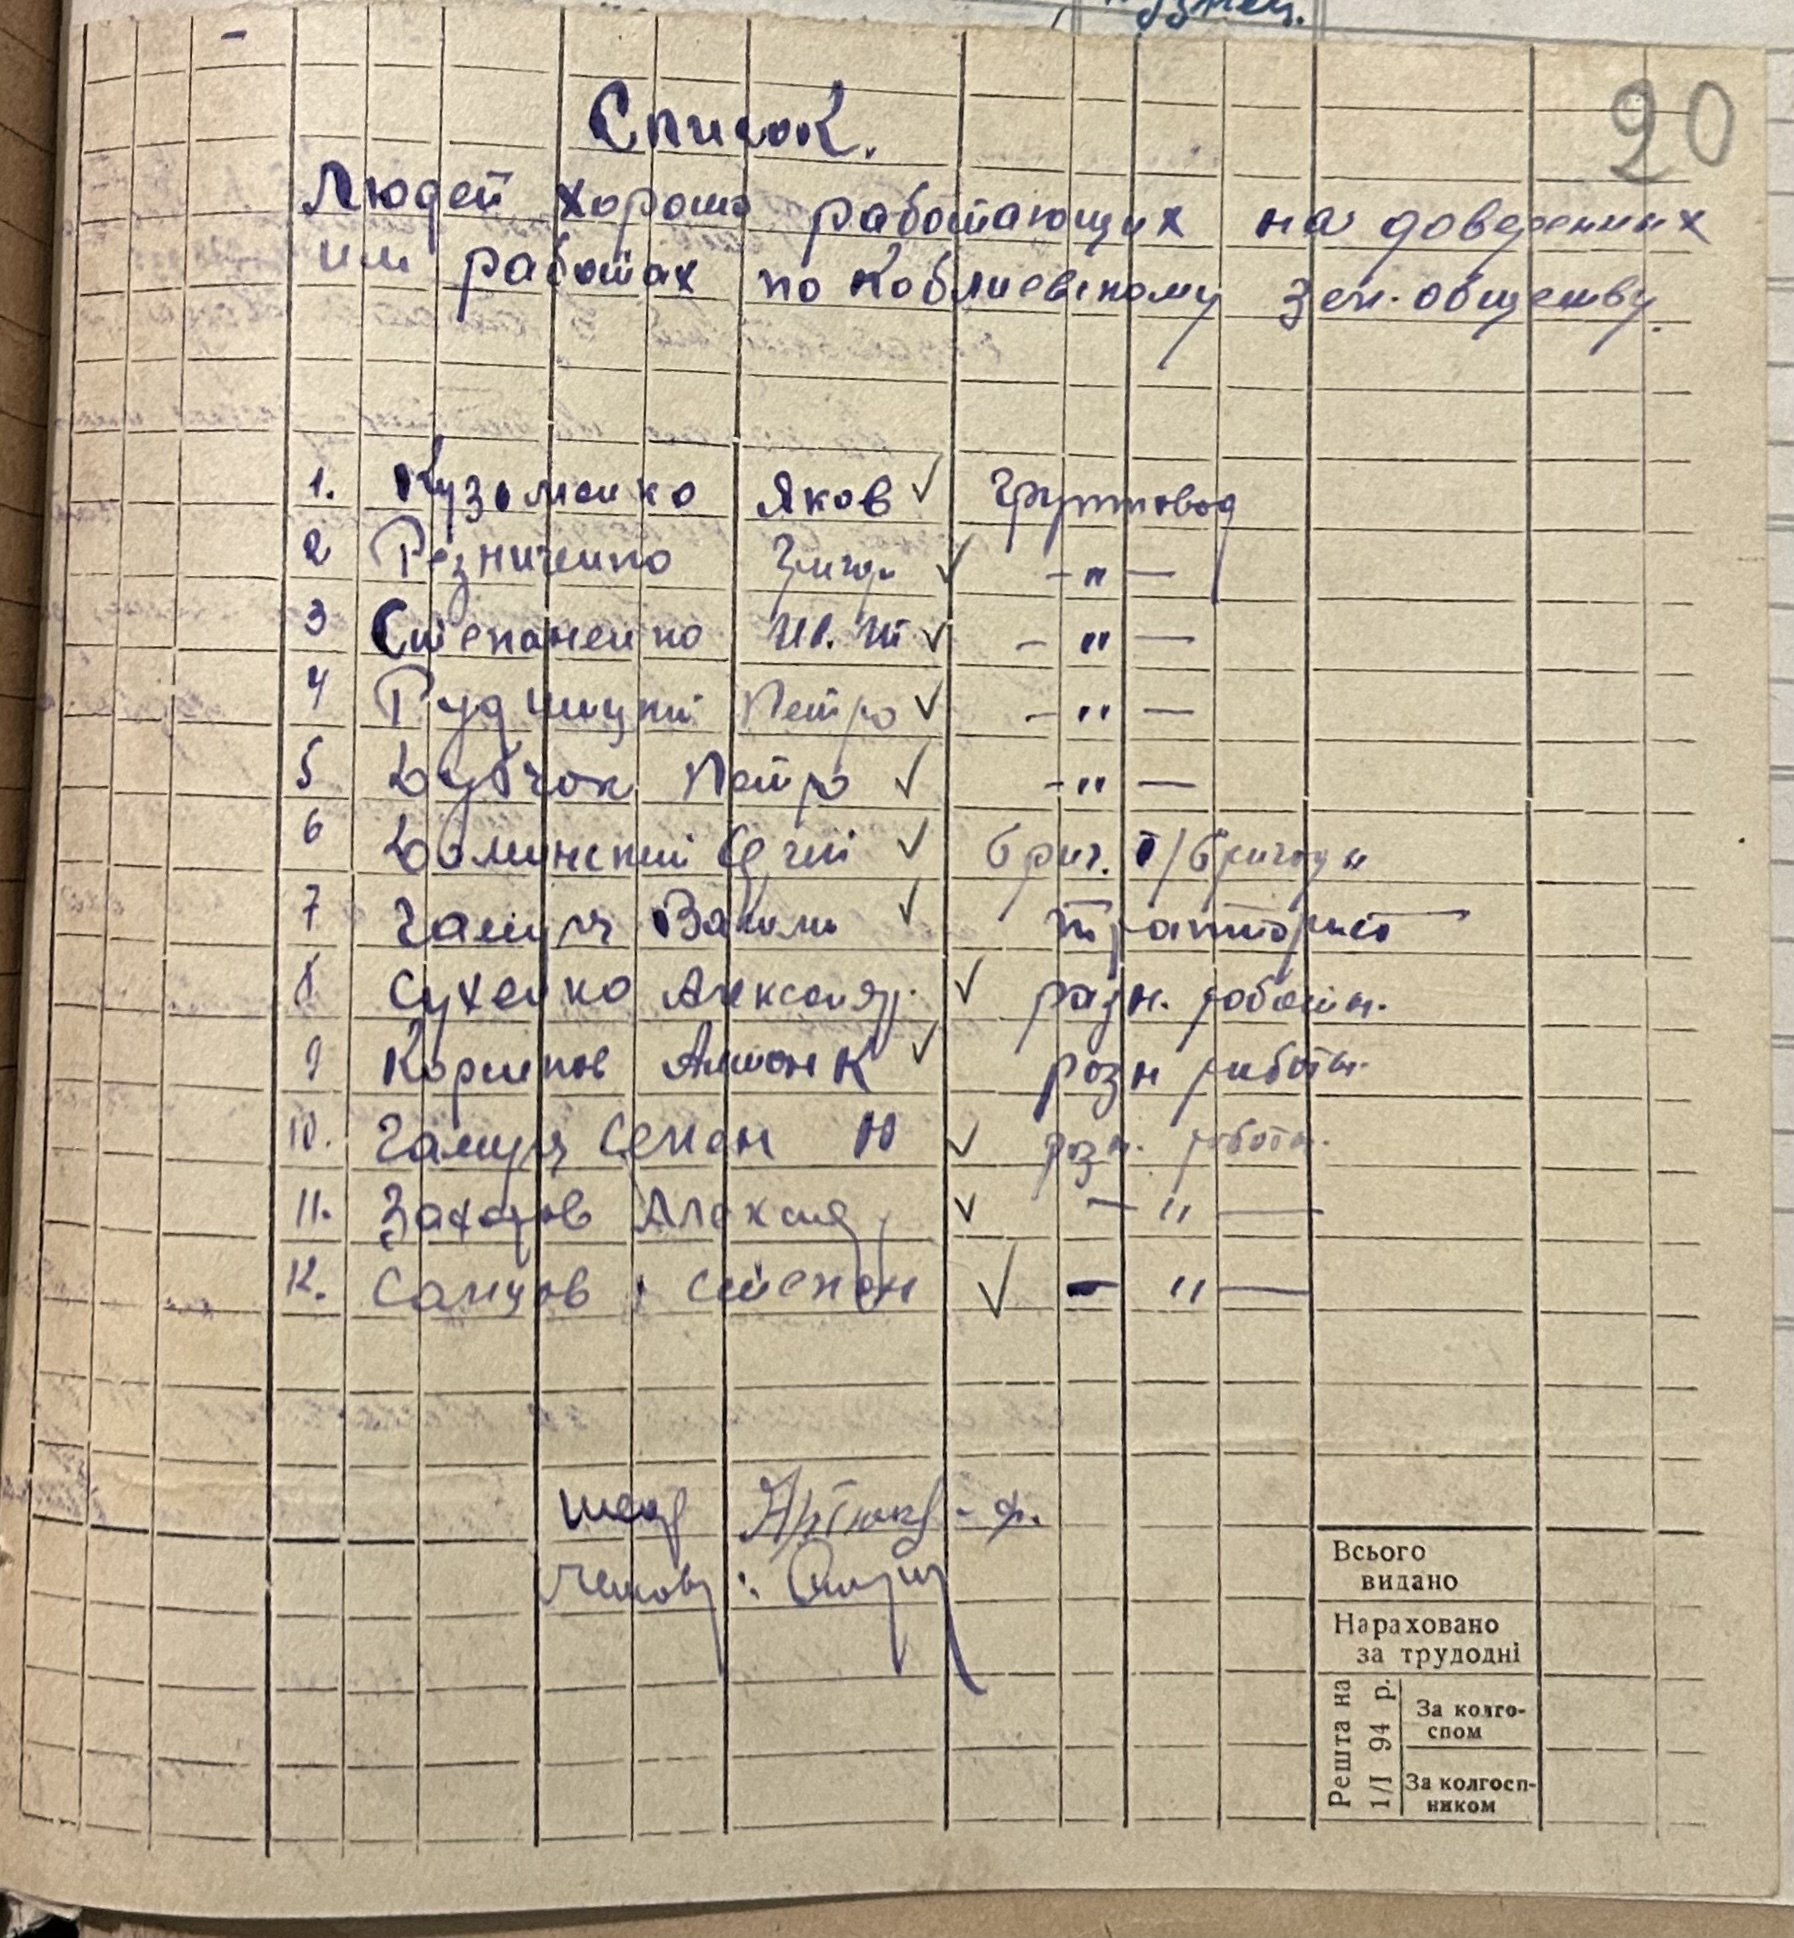 20
Список.
Людей хорошо работающих на доверенных
им работах по Коблиевскому зем. обществу.
1. Кузьменко Яков ✓ Груповод
2 Резниченко Григор. ✓ - " —
3 Степаненко Ив. Ив ✓ - " —
4 Рудницкий Петро ✓ - " —
5 Дубчак Петро ✓ - " —
6 Долинский ✓ бриг. /бригады
7 Гамула Васили ✓ тракторист
8 Сухенко Александр. ✓ разн. работы.
9 Корытов Антон К ✓ разн работы.
10. Гамула Семен Н ✓ разн. работы.
11. Захаров Александ. ✓ — " —
12. Самцов Степан ✓ — " —
Всього
видано
Нараховано
за трудодні
Решта на
1/I 94 р.
За колго-
спом
За колгосп-
ником